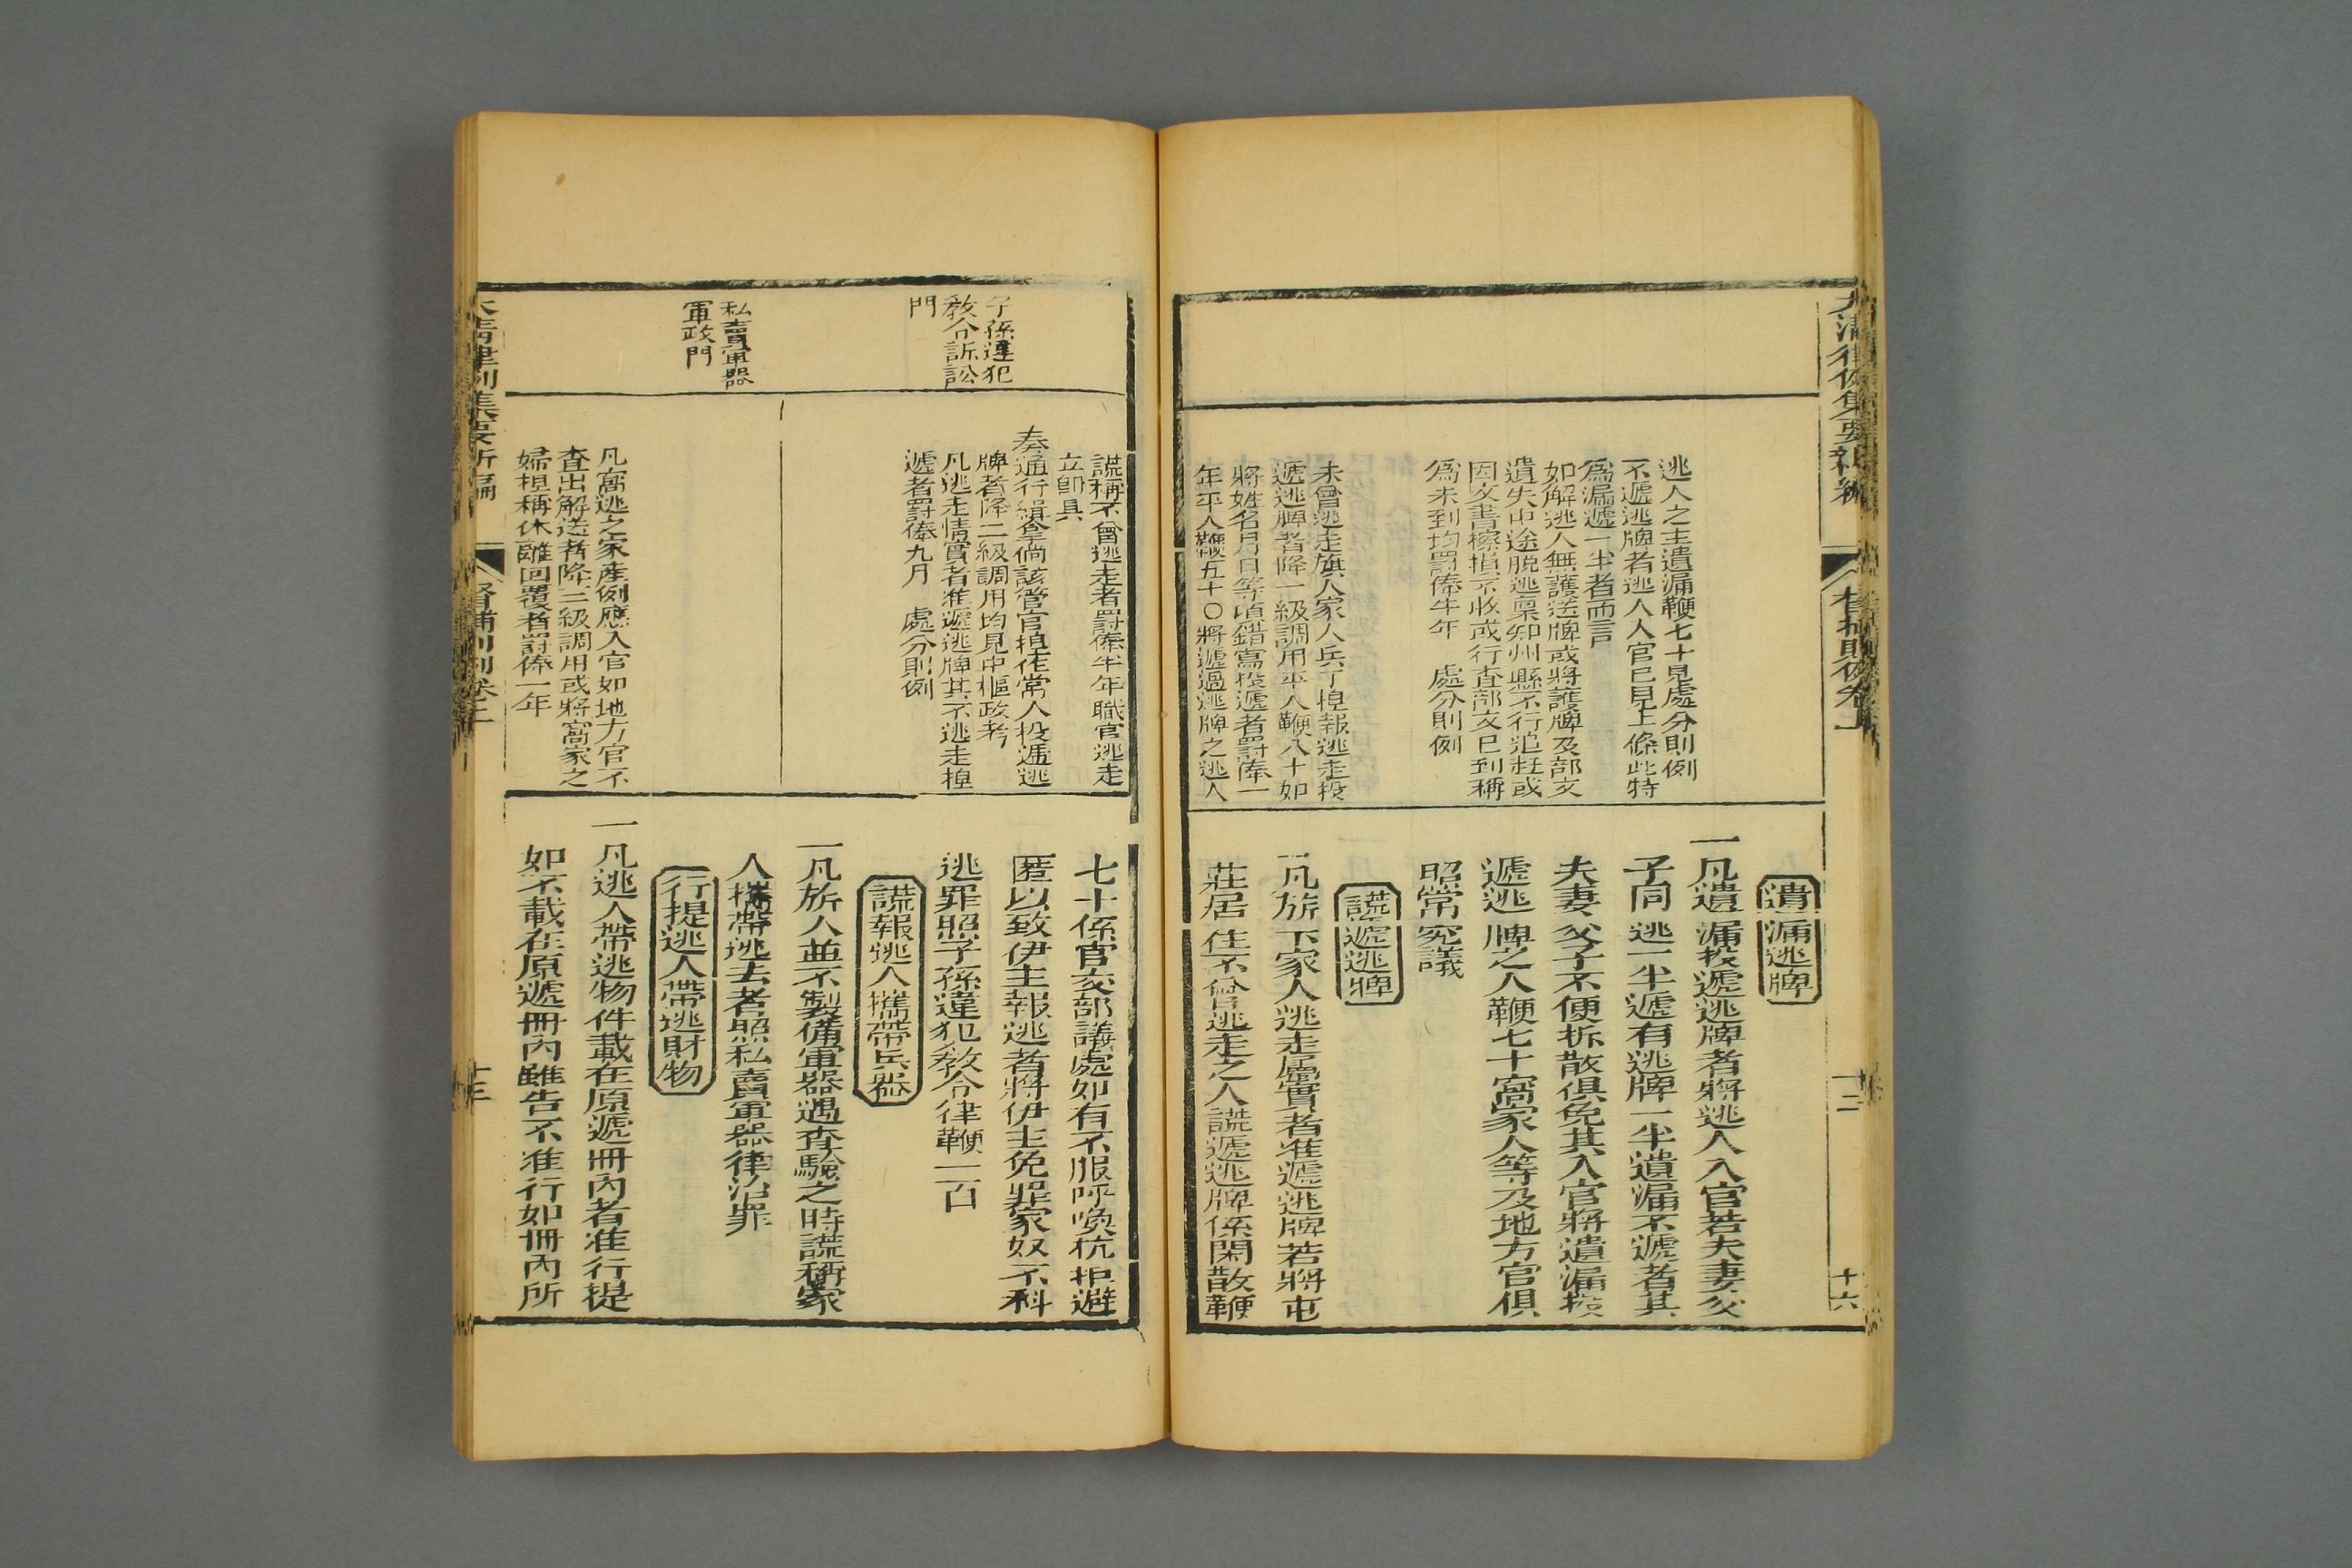 遺漏逃牌
一凡遺漏投遞逃牌者將逃人入官若夫妻父
子同逃一半遞有逃牌一半遺漏不遞者其
夫妻父子不便拆散俱免其入官將遺漏投
遞逃牌之人鞭七十窩家人等及地方官俱
照常究議
謊遞逃牌
一凡旂下家人逃走屬實者准遞逃牌若將屯
莊居住不曾逃走之人謊遞逃牌係閑散鞭
逃人之主遺漏鞭七十見處分則例
不遞逃牌者逃人入官已見上條此特
為漏遞一半者而言
如解逃人無護送牌或將護牌及部文
遺失中途脫逃稟知州縣不行追赶或
因文書擦損不收或行查部文已到稱
為未到均罰俸半年 處分則例
未曾逃走旗人家人兵丁捏報逃走投
遞逃牌者降一級調用平人鞭八十如
將姓名月日等項錯寫投遞者罰俸一
年平人鞭五十〇將遞過逃牌之逃人
十六
子孫違犯
教令訴訟
門
私賣軍器
軍政門
謊稱不曾逃走者罰俸半年職官逃走
立即具
奏通行緝拿倘該管官捏作常人投遞逃
牌者降二級調用均見中樞政考
凡逃走情實者准遞逃牌其不逃走捏
遞者罰俸九月 處分則例
凡窩逃之家產例應入官如地方官不
查出解送者降三級調用或將窩家之
婦捏稱休離回覆者罰俸一年
七十係官交部議處如有不服呼喚抗拒避
匿以致伊主報逃者將伊主免罪家奴不科
逃罪照子孫違犯教令律鞭一百
謊報逃人攜帶兵器
一凡旂人並不製備軍器遇查驗之時謊稱家
人攜帶逃去者照私賣軍器律治罪
行提逃人帶逃財物
一凡逃人帶逃物件載在原遞冊內者准行提
如不載在原遞冊內雖告不准行如冊內所
大清律例集要新編
督捕則例卷上